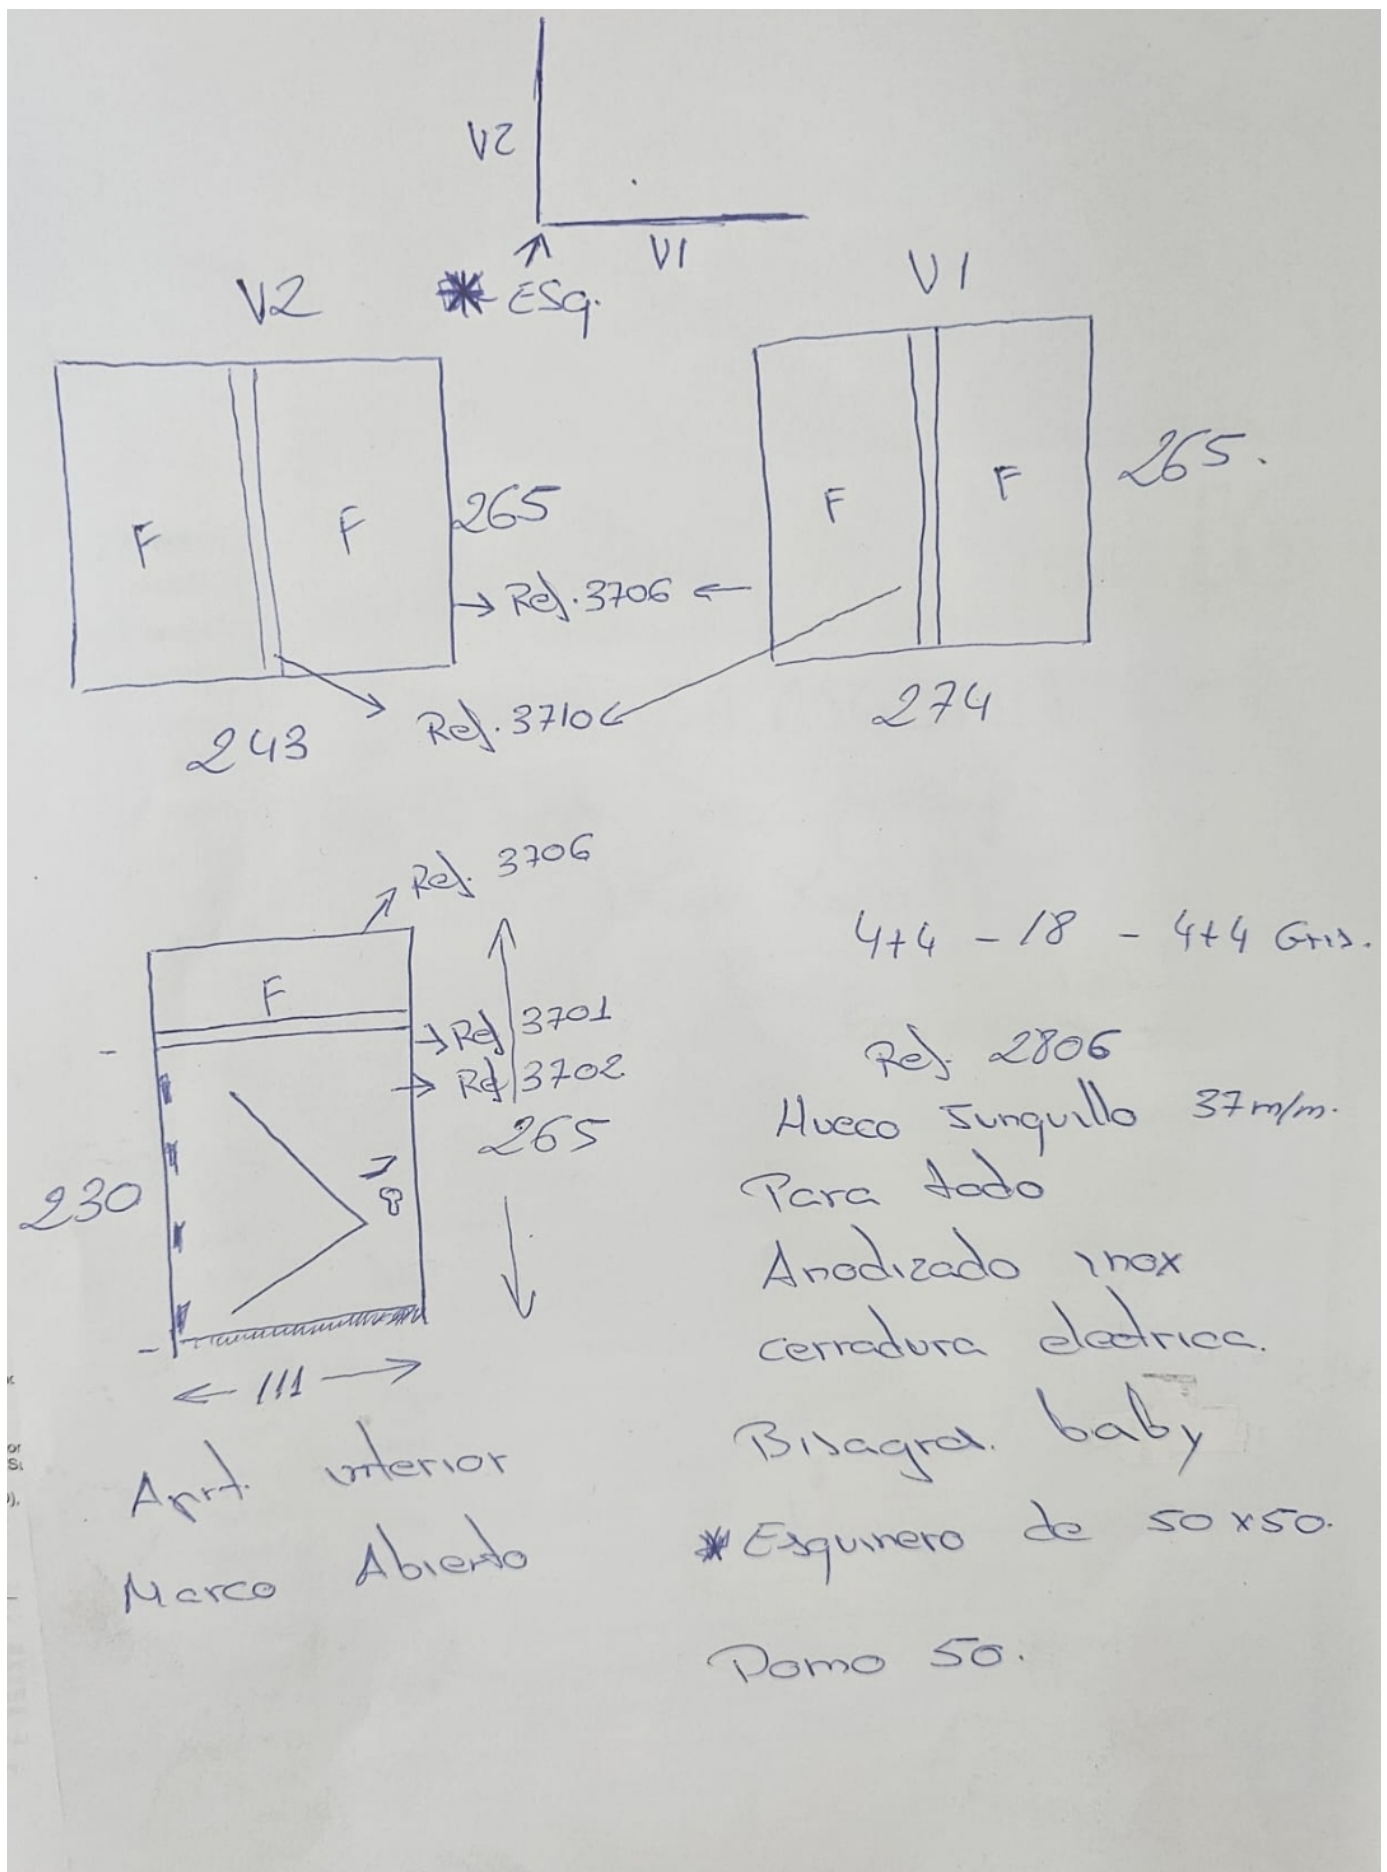 V2
V1
* ESq.
V2
V1
F
F
265
F
F
265.
Ref. 3706
Ref. 3710
243
274
Ref. 3706
F
Ref 3701
Ref 3702
265
230
111
Aprt. interior
Marco Abierto
4+4 - 18 - 4+4 Gris.
Ref. 2806
Hueco Junquillo 37 m/m.
Para todo
Anodizado inox
cerradura electrica.
Bisagra. baby
* Esquinero de 50 x 50.
Pomo 50.